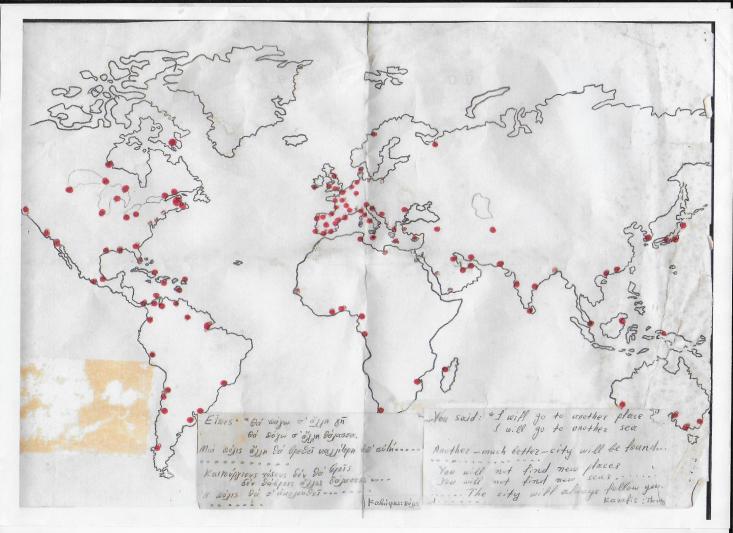 Είπες· "Θά πάγω σ' άλλη γῆ
θά πάγω σ' άλλη θάλασσα.
Μιά πόλις άλλη θά βρεθεῖ καλλίτερη ἀπ' αὐτή......
Καινούργιους τόπους δέν θά βρεῖς
δέν θάβρεις άλλες θάλασσες....
Η πόλις θά σ' ἀκολουθεῖ......
Καβάφης:
You said: "I will go to another place
I will go to another sea
Another-much better-city will be found...
You will not find new places
You will not find new seas.......
.... The city will always follow you.
Kavafis: